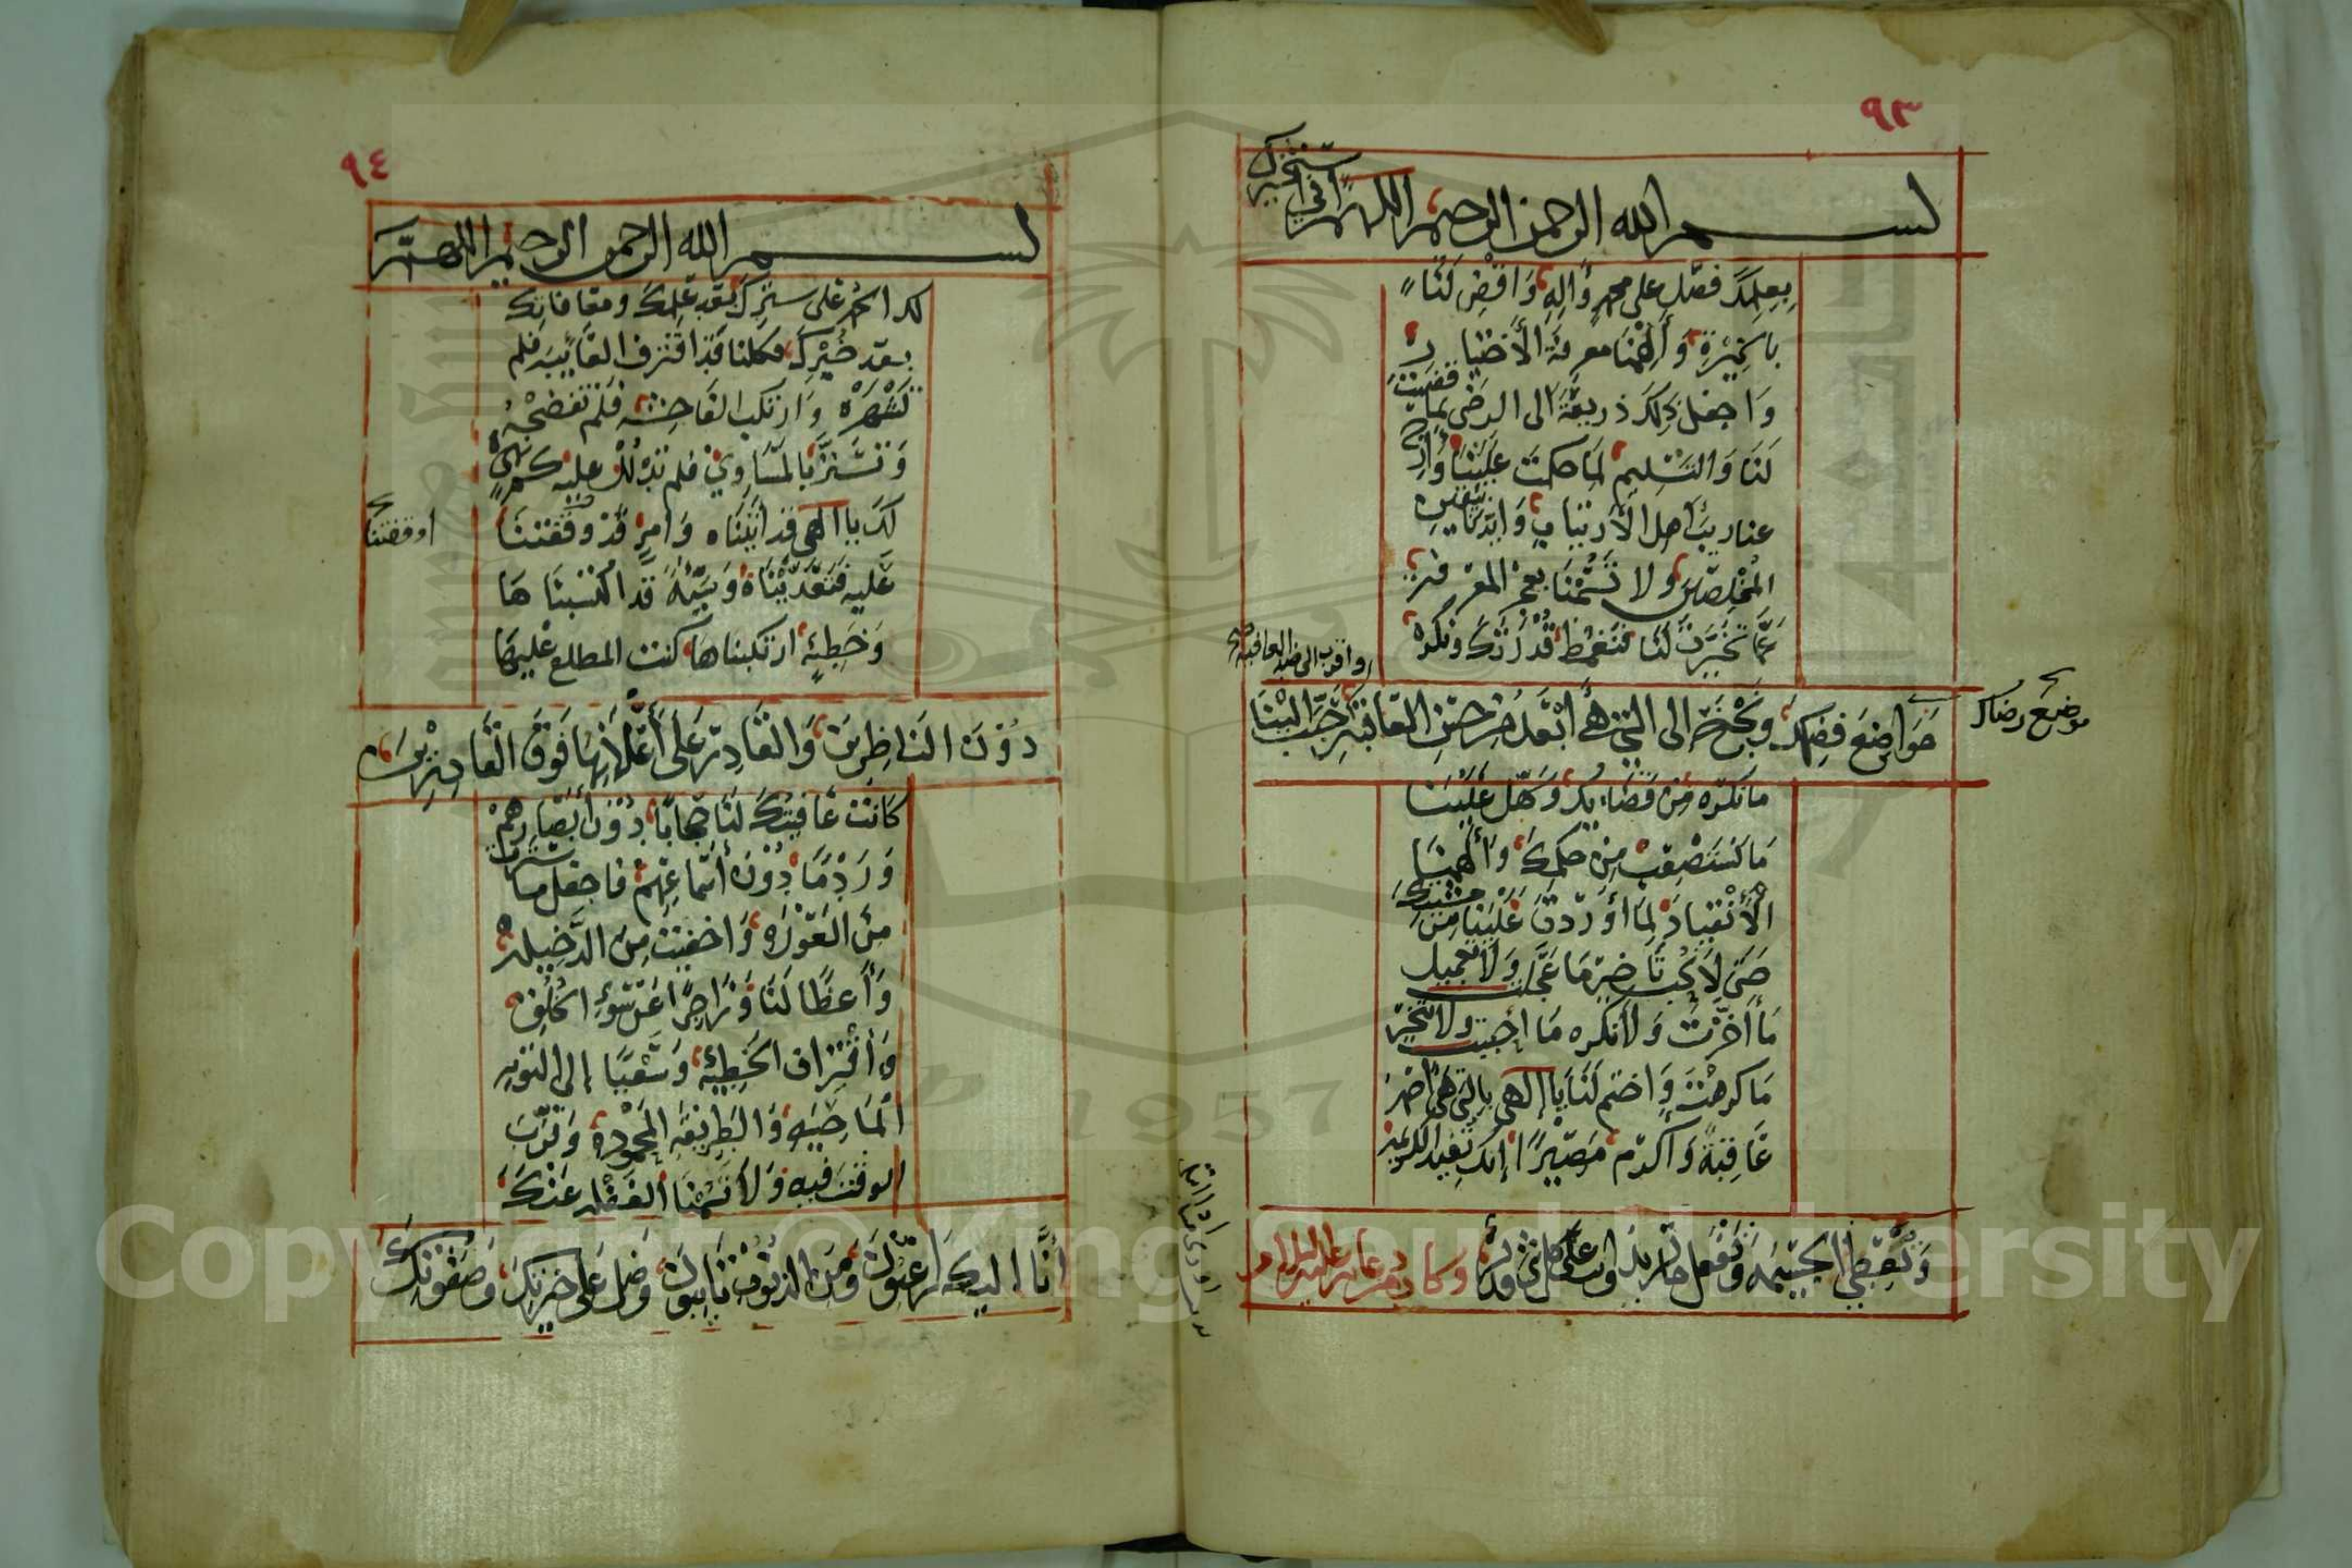 ٩٣
بسم الله الرحمن الرحيم اللهم اني
استخيرك
بعلمك فصل على محمد وآله واقض لنا
بالخيرة وألهمنا معرفة الأختيار
واجعل ذلك ذريعة الى الرضى بما قضيت
لنا والتسليم لما حكمت علينا وازح
عنا ريب أهل الأرتياب وايدنا بيقين
المخلصين ولا تسمنا بعجز المعرفة
عما تخيرت لنا فنغمط قدرتك ونكره
او اقرب الى ضد العافية
مواضع قضيتك ونجنح الى التي هي أبعد من حسن العاقبة حبب الينا
موضع رضاك
ما نكره من قضائك وسهل علينا
ما نستصعب من حكمك وألهمنا
الأنقياد لما أوردت علينا من مشيتك
حتى لا نحب تأخير ما عجلت ولا تعجيل
ما أخرت ولا نكره ما احببت ولا نتخير
ما كرهت واختم لنا يا إلهي بالتي هي أحمد
عاقبة وأكرم مصيرا إنك تفيد الكريمة
وتعطي الجسيمة وتفعل ما تريد وانت على كل شيء قدير وكان من دعائه عليه السلام
٩٤
بسم الله الرحمن الرحيم اللهم
لك الحمد على سترك بعد علمك ومعافاتك
بعد خبرك فكلنا قد اقترف العايبة فلم
تشهره وارتكب الفاحشة فلم تفضحه
وتستر بالمساوي فلم تدلل عليه كم نهي
لك يا الهي قد اتيناه وامر قد وقفتنا
اوقفتنا
عليه فتعديناه وسيئة قد اكتسبناها
وخطيئة ارتكبناها كنت المطلع عليها
دون الناظرين والقادر على أعلانها فوق القادرين
كانت عافيتك لنا حجابا دون أبصارهم
وردما دون أسماعهم فاجعل ما سترت
من العورة واخفيت من الدخيلة
واعظا لنا وزاجرا عن سوء الخلق
وأقتراف الخطيئة وسعيا إلى التوبة
الماحية والطريقة المحمودة وقرب
الوقت فيه ولا تسمنا الغفلة عنك
أنا اليك راغبون ومن الذنوب تايبون وصل على خيرتك وصفوتك